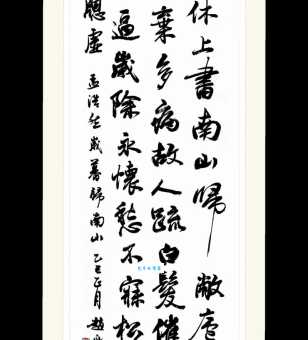 休上書南山歸敝廬
棄多病故人疏白髮催
逼歲除永懷愁不寐松
牕虛 孟浩然歲暮歸南山 乙丑正月 趙